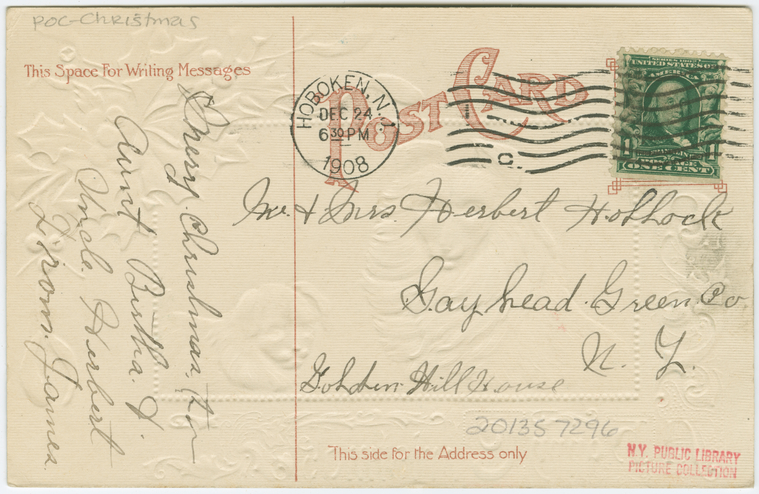 POC-Christmas
This Space For Writing Messages
POST CARD
HOBOKEN, N.J.
DEC 24
6 30 PM
1908
C.
SERIES 1902
UNITED STATES OF
AMERICA
POSTAGE
1 1
ONE CENT
Merry Christmas to
Aunt Bertha &
Uncle Herbert
From James
Mr. & Mrs. Herbert Hollock
Gayhead. Green Co
N. Y.
Golden Hill House
201357296
This side for the Address only
N.Y. PUBLIC LIBRARY
PICTURE COLLECTION